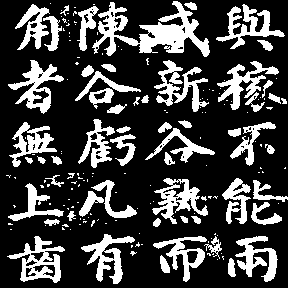 與稼不能兩
成新谷熟而
陳谷虧凡有
角者無上齒